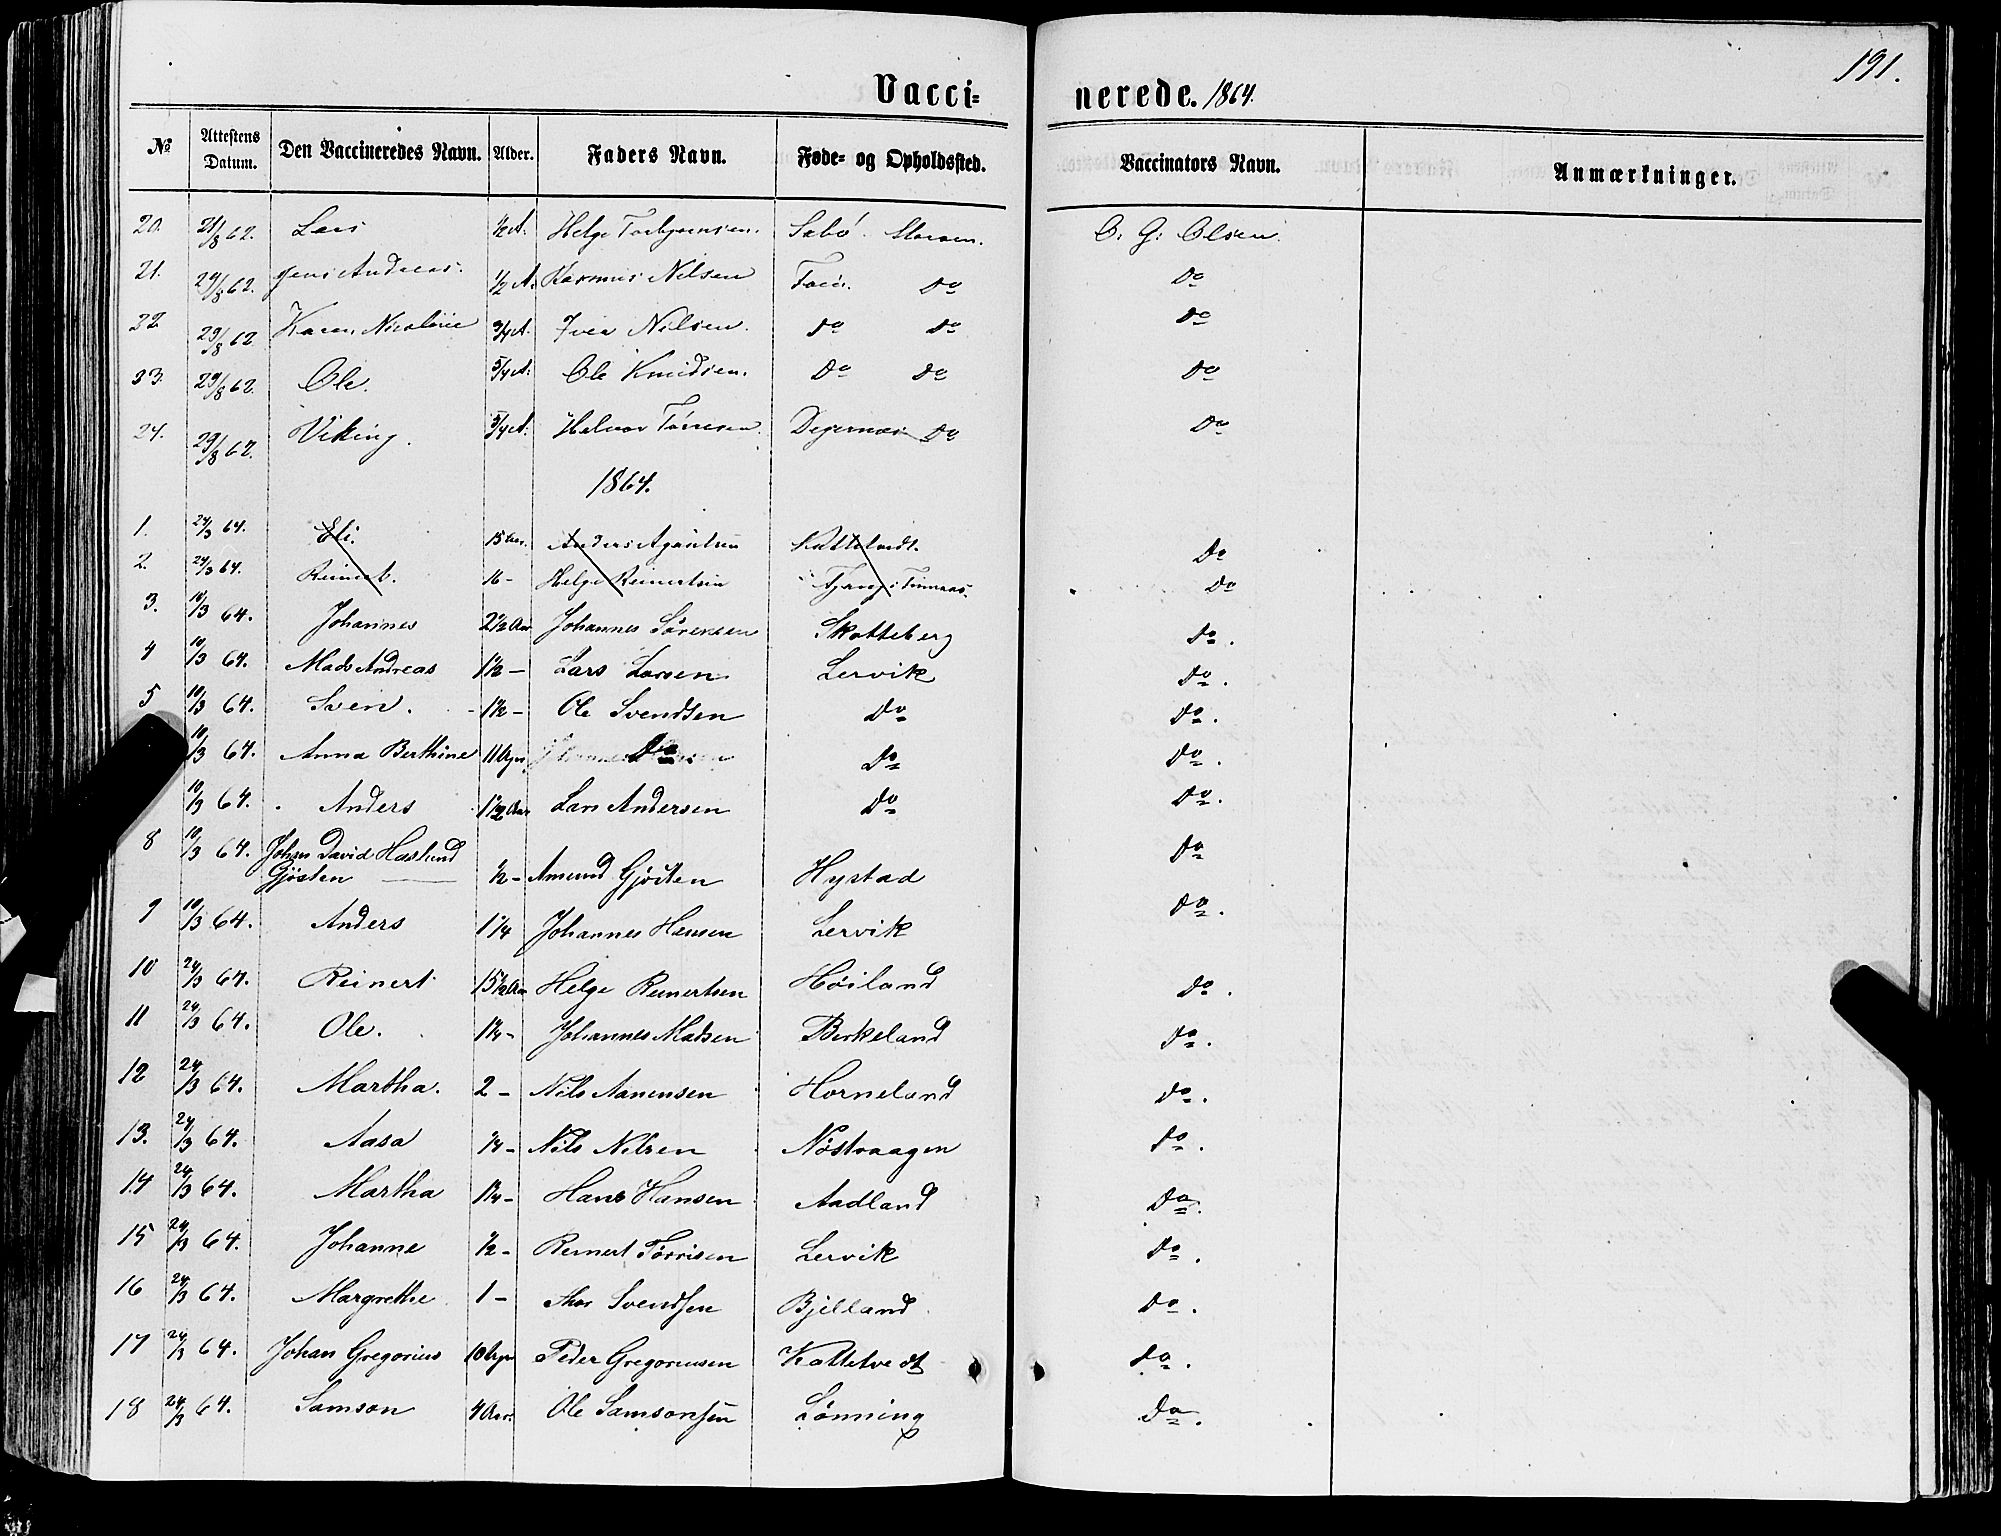 191.
Vacci= nerede. 1864.
No Attestens Datum. Den Vaccineredes Navn. Alder. Faders Navn. Føde= og Opholdssted. Vaccinators Navn. Anmærkninger.
20. 21/8 62. Lars ½ A. Helge Sæbø. O. G. Olsen.
21. 29/8 62. Jens Andreas. ½ A. Rasmus Nilsen Do Do
22. 29/8 62 Karen ¾ A. Iver Nilsen. Do Do Do
23. 29/8 62. Ole. 5/4 A. Ole Knudsen. Do Do Do
24. 29/8 62. Viking. 5/4 A. Helvor Tørresen. Degernæs Do Do
1864.
1. 24/3 64. Eli. 15 Aar. Anders Kattetvedt. Do
2. 24/3 64. Reinert. 16 - Helge Reinertsen Do
3. 10/3 64. Johannes 2½ Aar Johannes Sörensen Skotteberg Do.
4 10/3 64. Mads Andreas 1½ - Lars Larsen Lervik Do.
5 10/3 64. Sven. 1½ - Ole Svendsen Do Do.
10/3 64. Anna Berthine 11 Do. Do Do.
10/3 64. Anders 1½ Aar Lars Andersen Do Do.
8 10/3 64. Johan David Haslund
Gjösten ½ - Amund Gjösten Hystad Do
9 10/3 64. Anders 1¼ Johannes Hansen Lervik Do.
10 24/3 64. Reinert 15½ Aar Helge Reinertsen Höiland Do.
11 24/3 64. Ole. 1¼ - Johannes Madsen Birkeland Do.
12 24/3 64. Martha. 2 - Nils Aanensen Horneland Do.
13. 24/3 64. Aasa ¼ - Nils Nilsen Nöstvaagen Do.
14 24/3 64. Martha 1¼ - Hans Hansen Aadland Do.
15 24/3 64. Johanne ½ - Reinert Törrisen Lervik Do.
16 24/3 64. Margrethe 1 - Thor Svendsen Bjelland Do.
17 24/3 64. Johan Gregorius 10 Peder Gregoriusen Kattetvedt Do.
18 24/3 64. Samson 4 Aar. Ole Samsonsen Lönning Do.